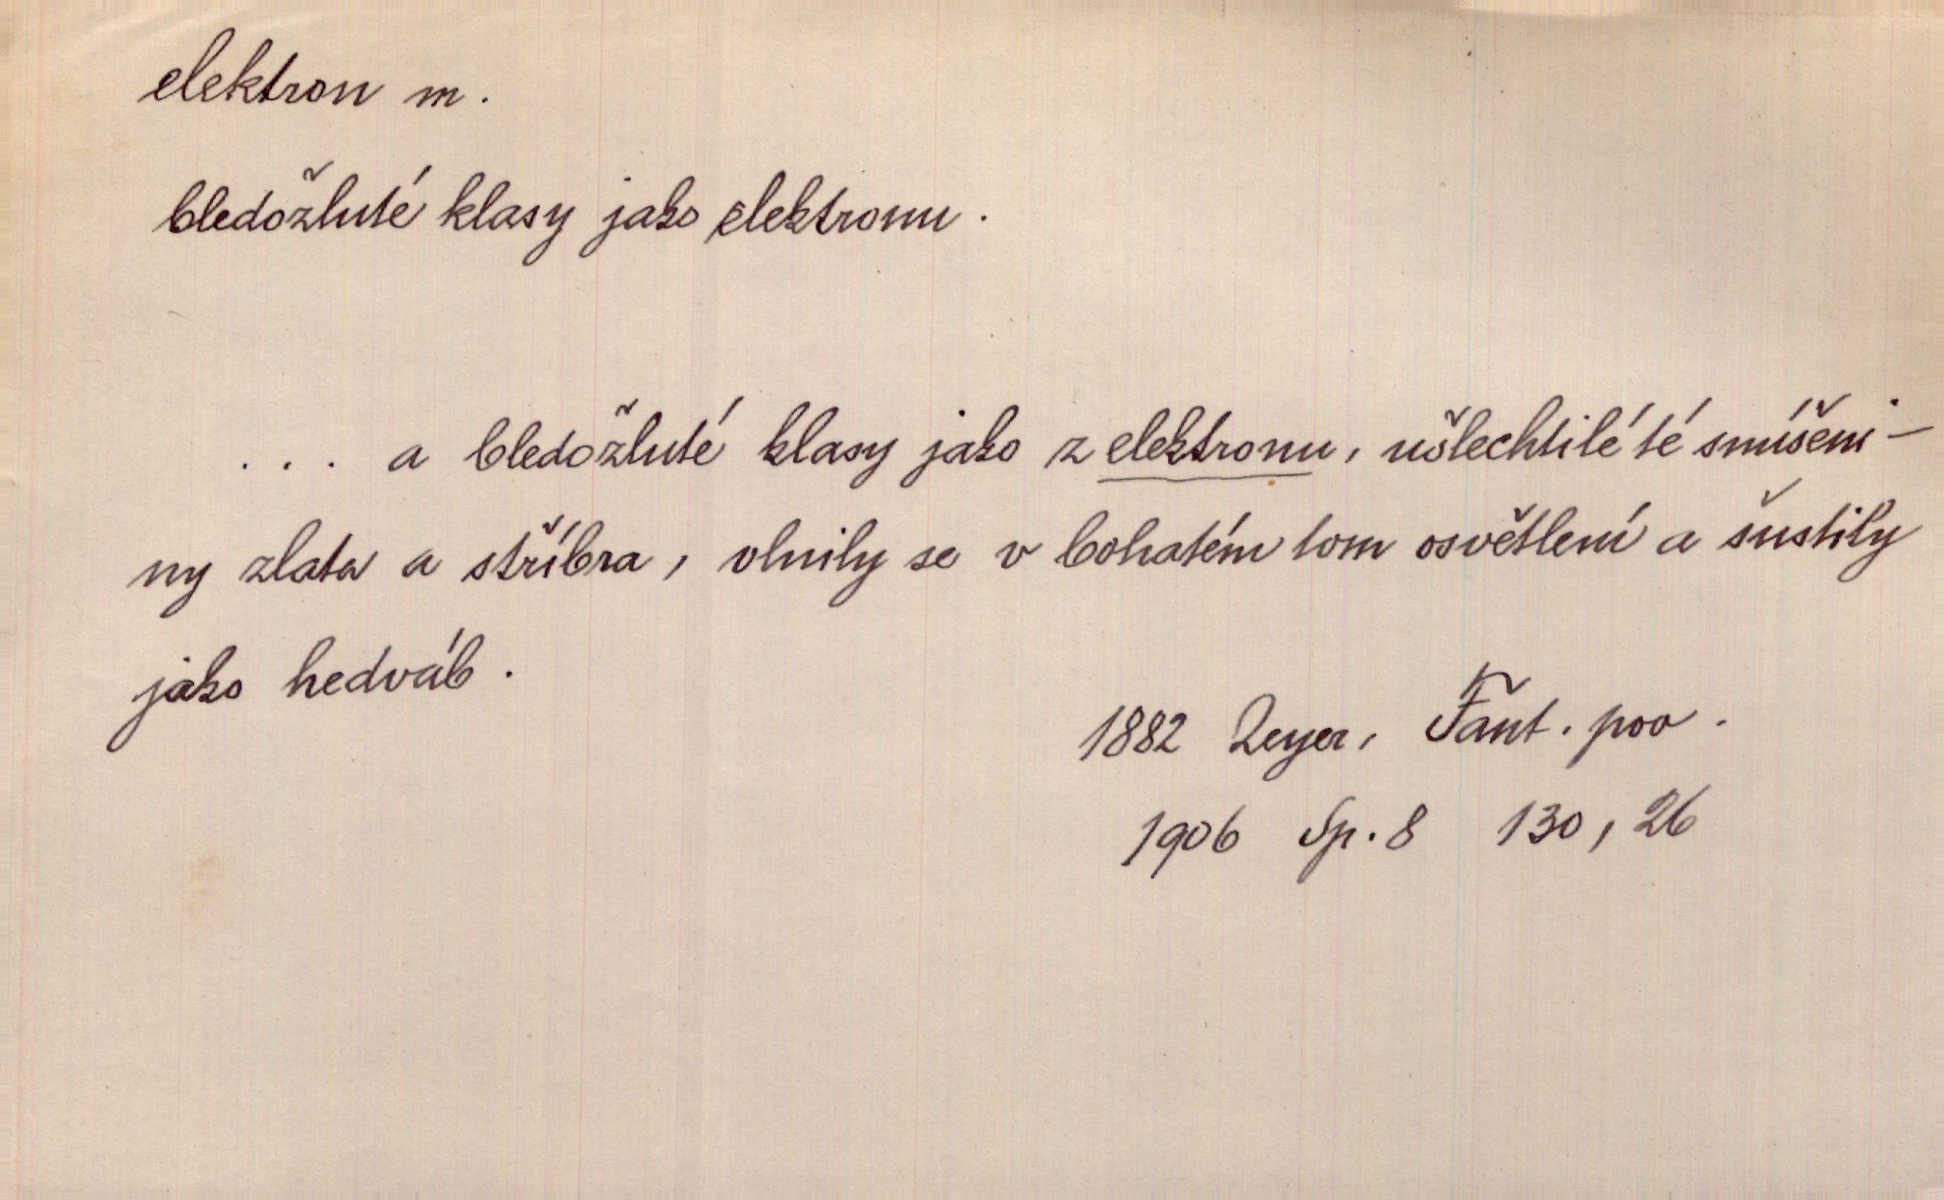 elektron m.
bledožluté klasy jako elektronu.
... a bledožluté klasy jako z elektronu, ušlechtilé té smíšeni-
ny zlata a stříbra, vlnily se v bohatém tom osvětlení a šustily
jako hedváb.
1882 Zeyer, Fant. pov.
1906 Sp. 8 130, 26